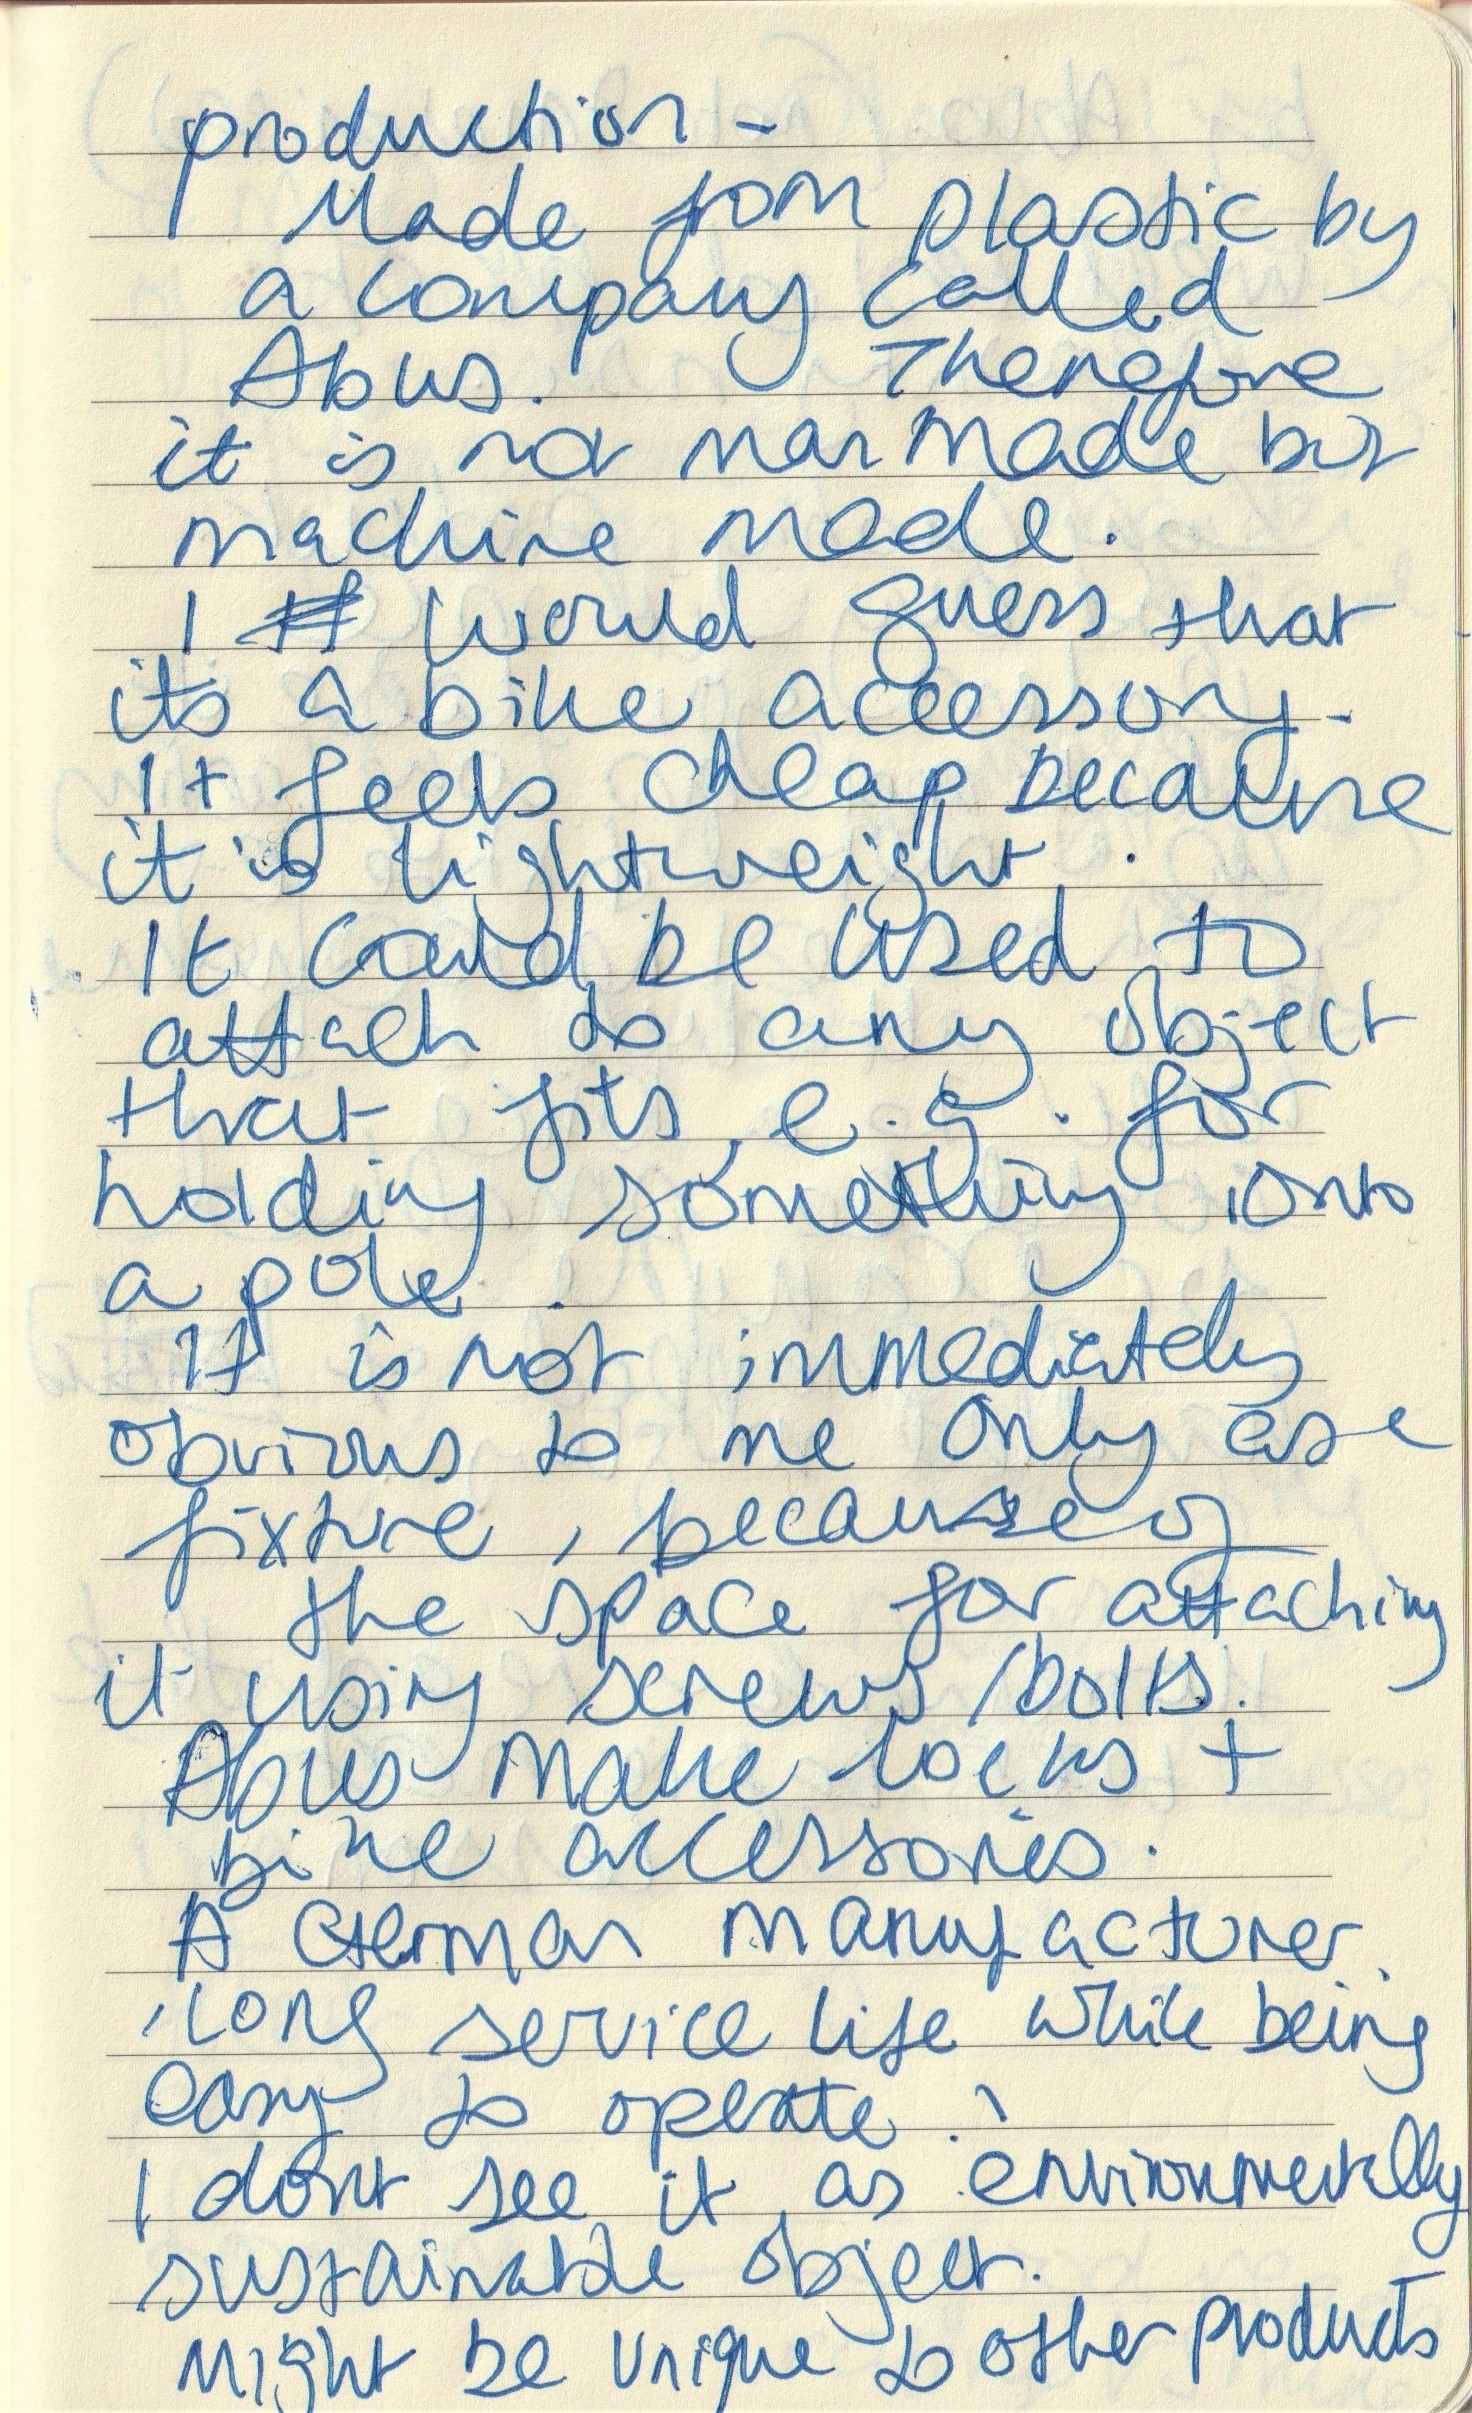 production -
Made from plastic by
a company called
Abus. Therefore
it is not manmade but
machine made.
I would guess that
its a bike accessory.
It feels cheap because
it is lightweight.
It could be used to
attach to any object
that fits, e.g. for
holding something onto
a pole.
It is not immediately
obvious to me only as a
fixture, because of
the space for attaching
it using screws/bolts.
Abus make locks +
bike accessories.
A German manufacturer
'long service life while being
easy to operate.'
I don't see it as environmentally
sustainable object.
Might be unique to other products